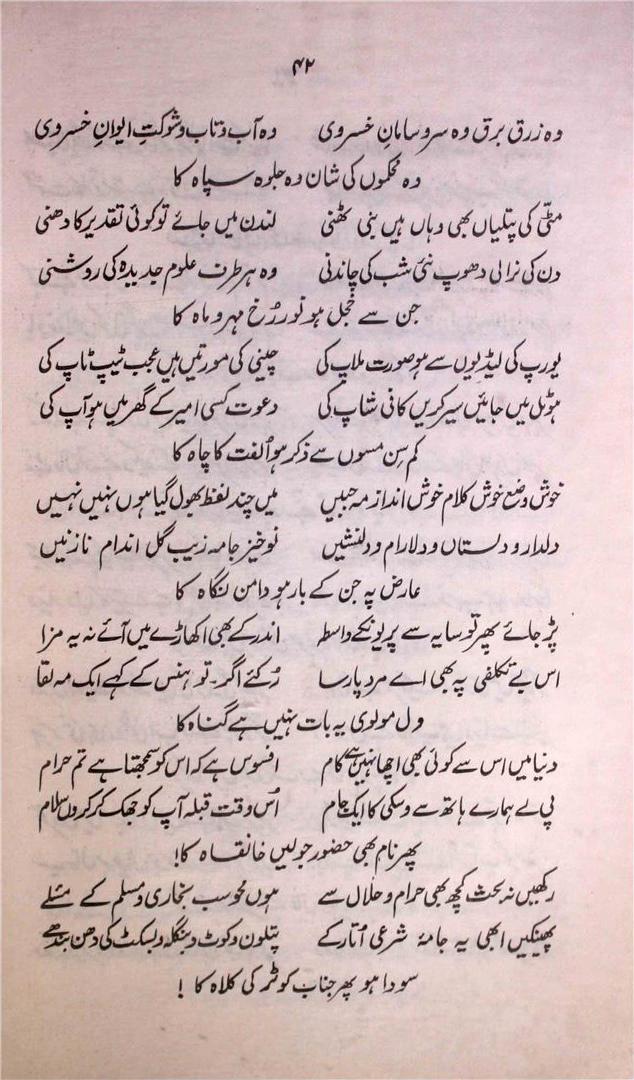 ۴۲
وہ زرق برق وہ سر و سامانِ خسروی وہ آب و تاب و شوکتِ ایوانِ خسروی
وہ محکموں کی شان وہ جلوہ سپاہ کا
مٹّی کی پتلیاں بھی وہاں ہیں بنی ٹھنی لندن میں جائے تو کوئی تقدیر کا دھنی
دن کی نرالی دھوپ نئی شب کی چاندنی وہ ہر طرف علوم جدیدہ کی روشنی
جن سے خجل ہو نور رُخ مہر و ماہ کا
یورپ کی لیڈیوں سے ہو صورت ملاپ کی چینی کی مورتیں ہیں عجب ٹیپ ٹاپ کی
ہوٹل میں جائیں سیر کریں کافی شاپ کی دعوت کسی امیر کے گھر میں ہو آپ کی
کم سِن مسوں سے ذکر ہو اُلفت کا چاہ کا
خوش وضع خوش کلام خوش انداز مہ جبیں میں چند لفظ بھول گیا ہوں نہیں نہیں
دلدار و دلستاں و دلارام و دلنشیں نوخیز جامہ زیب گل اندام نازنیں
عارض پہ جن کے بار ہو دامن نگاہ کا
پڑ جائے پھر تو سایہ سے پریونکے واسطہ اندر کے بھی اکھاڑے میں آئے نہ یہ مزا
اس بے تکلفی پہ بھی اے مرد پارسا رُکئے اگر۔ تو ہنس کے کہے ایک مہ لقا
ول مولوی یہ بات نہیں ہے گناہ کا
دنیا میں اس سے کوئی بھی اچھا نہیں ہے کام افسوس ہے کہ اس کو سمجھتا ہے تم حرام
پی لے ہمارے ہاتھ سے وسکی کا ایک جام اُس وقت قبلہ آپ کو جھک کر کروں سلام
پھر نام بھی حضور جو لیں خانقاہ کا!
رکھیں نہ بحث کچھ بھی حرام و حلال سے ہوں محو سب بخاری و مسلم کے مسٔلے
پھینکیں ابھی یہ جامۂ شرعی اُتار کے پتلون و کوٹ و بنگلہ و بسکٹ کی دھن بندھے
سودا ہو پھر جناب کو ٹمر کی کلاہ کا !